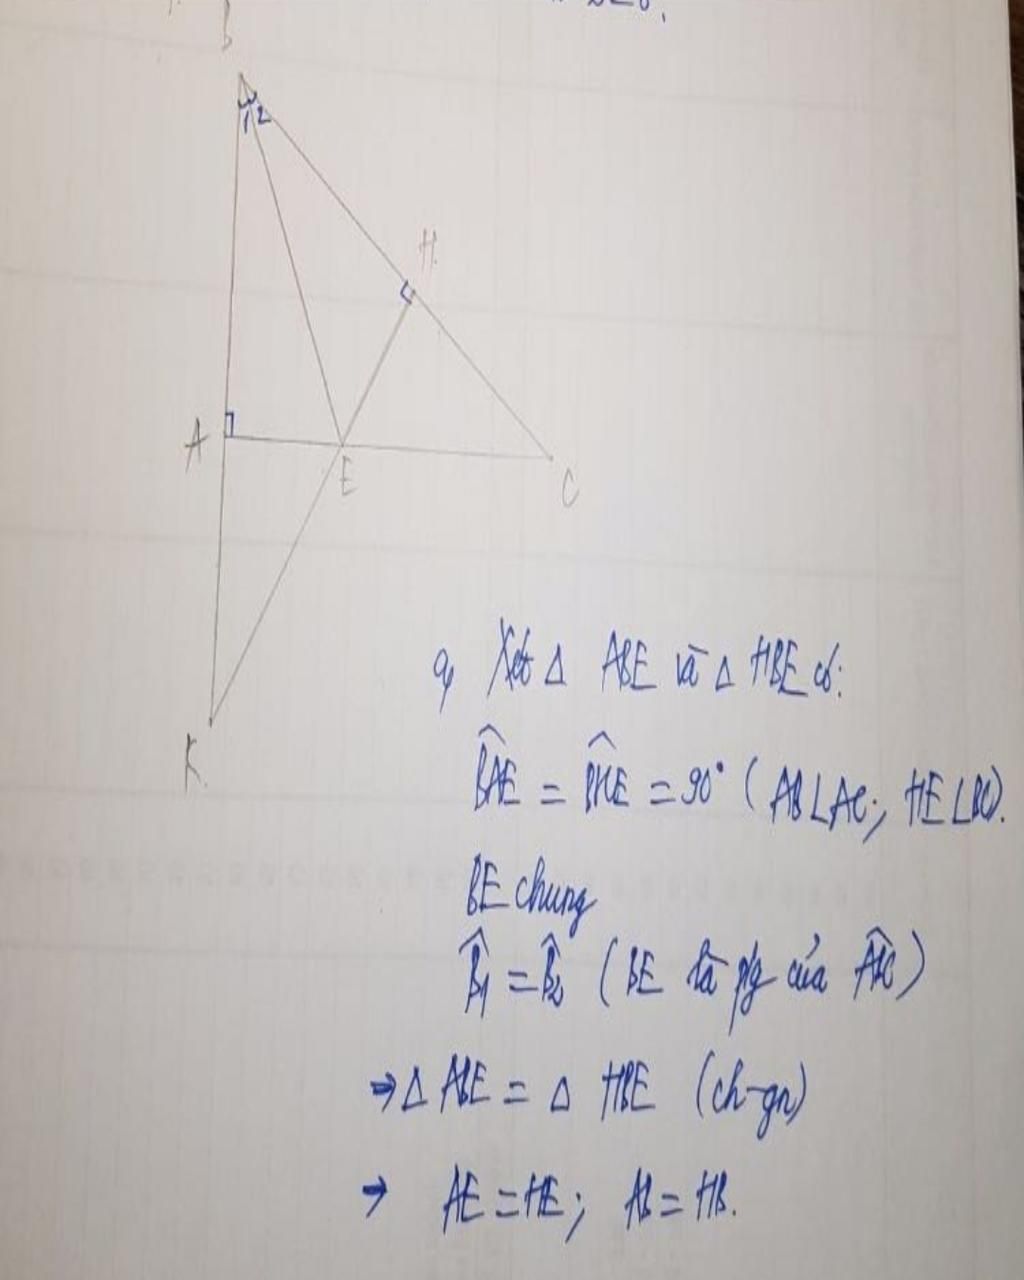 B
1 2
H
A
E
C
K
a, Xét Δ ABE và Δ HBE có:
\widehat{BAE} = \widehat{BHE} = 90° (AB⊥AC; HE⊥BC).
BE chung
\widehat{B}₁ = \widehat{B}₂ (BE là p/g của \widehat{ABC})
⇒ Δ ABE = Δ HBE (ch-gn)
→ AE = HE; AB = HB.